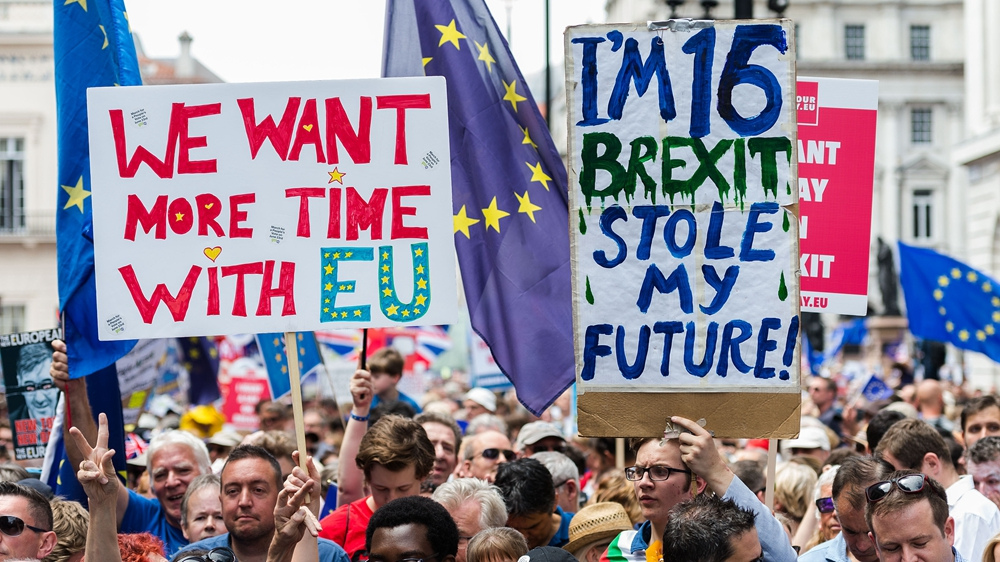 WE WANT
MORE TIME
WITH EU
I'M 16
BREXIT
STOLE
MY
FUTURE!
OUR
Y.EU
ANT
AY
XIT
Y.EU
THE EUROPEAN